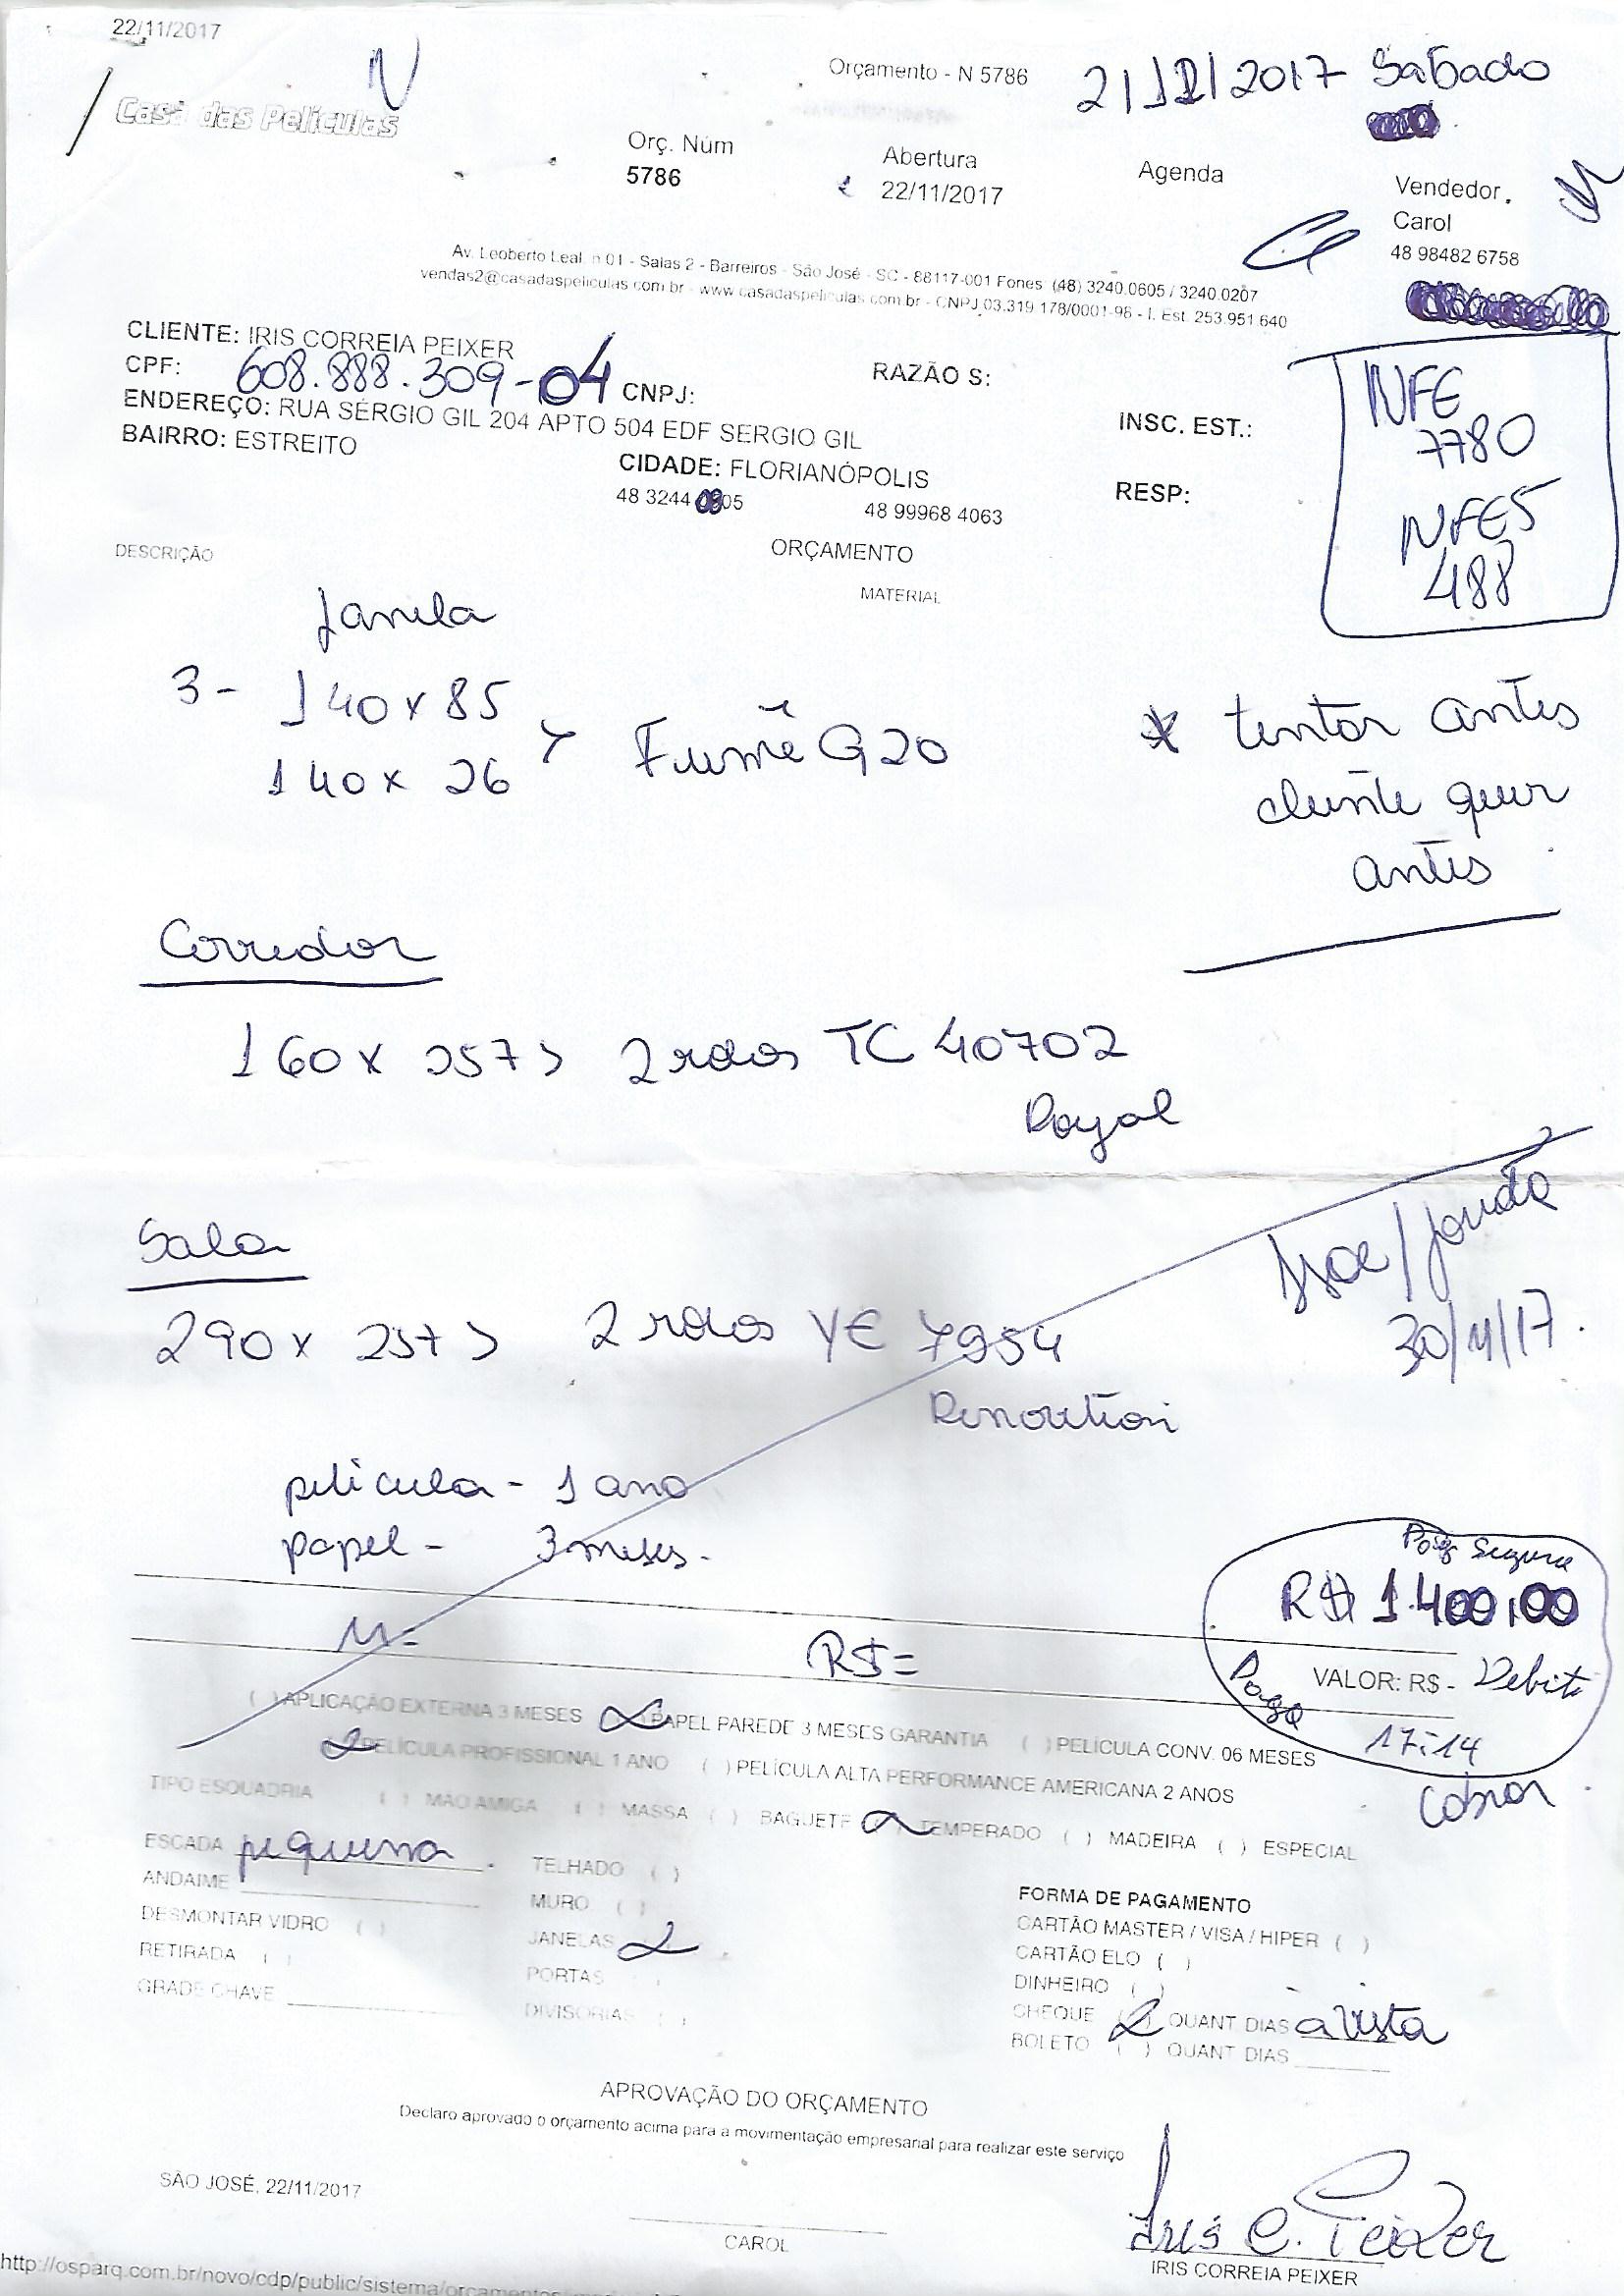 22/11/2017
N
Orçamento - N 5786
2/12/2017 Sabado
Casa das Películas
Orç. Núm
5786
Abertura
22/11/2017
Agenda
Vendedor
Carol
48 98482 6758
Av. Leoberto Leal, n 01 - Salas 2 - Barreiros - São José - SC - 88117-001 Fones (48) 3240.0605 / 3240.0207
vendas2@casadaspeliculas.com.br - www.casadaspeliculas.com.br - CNPJ 03.319.178/0001-96 - I. Est. 253.951.640
CLIENTE: IRIS CORREIA PEIXER
CPF: 608.888.309-04 CNPJ:
RAZÃO S:
ENDEREÇO: RUA SÉRGIO GIL 204 APTO 504 EDF SERGIO GIL
INSC. EST.:
BAIRRO: ESTREITO
CIDADE: FLORIANÓPOLIS
RESP:
48 3244 05
48 99968 4063
NFE
7780
NFES
488
DESCRIÇÃO
ORÇAMENTO
MATERIAL
Janela
3 - 140 x 85
140 x 26 > Fumê G20
* tentar antes
cliente quer
antes
Corredor
160 x 257 > 2 rolos TC 40702
Royal
Sala
290 x 257 > 2 rolos YE 7954
Renovation
30/11/17.
película - 1 ano
papel - 3 meses.
Pag Seguro
R$ 1.400,00
M=
R$=
VALOR: R$ - Debito
Pago
17:14
cobrar
( ) APLICAÇÃO EXTERNA 3 MESES ( ) PAPEL PAREDE 3 MESES GARANTIA ( ) PELÍCULA CONV. 06 MESES
( ) PELÍCULA PROFISSIONAL 1 ANO ( ) PELÍCULA ALTA PERFORMANCE AMERICANA 2 ANOS
TIPO ESQUADRIA ( ) MÃO AMIGA ( ) MASSA ( ) BAGUETE ( ) TEMPERADO ( ) MADEIRA ( ) ESPECIAL
ESCADA pequena.
TELHADO ( )
ANDAIME
MURO ( )
DESMONTAR VIDRO ( )
JANELAS
RETIRADA ( )
PORTAS
GRADE CHAVE
DIVISORIAS ( )
FORMA DE PAGAMENTO
CARTÃO MASTER / VISA / HIPER ( )
CARTÃO ELO ( )
DINHEIRO ( )
CHEQUE ( ) QUANT DIAS a vista
BOLETO ( ) QUANT DIAS
APROVAÇÃO DO ORÇAMENTO
Declaro aprovado o orçamento acima para a movimentação empresarial para realizar este serviço
SÃO JOSÉ, 22/11/2017
CAROL
Iris C. Peixer
IRIS CORREIA PEIXER